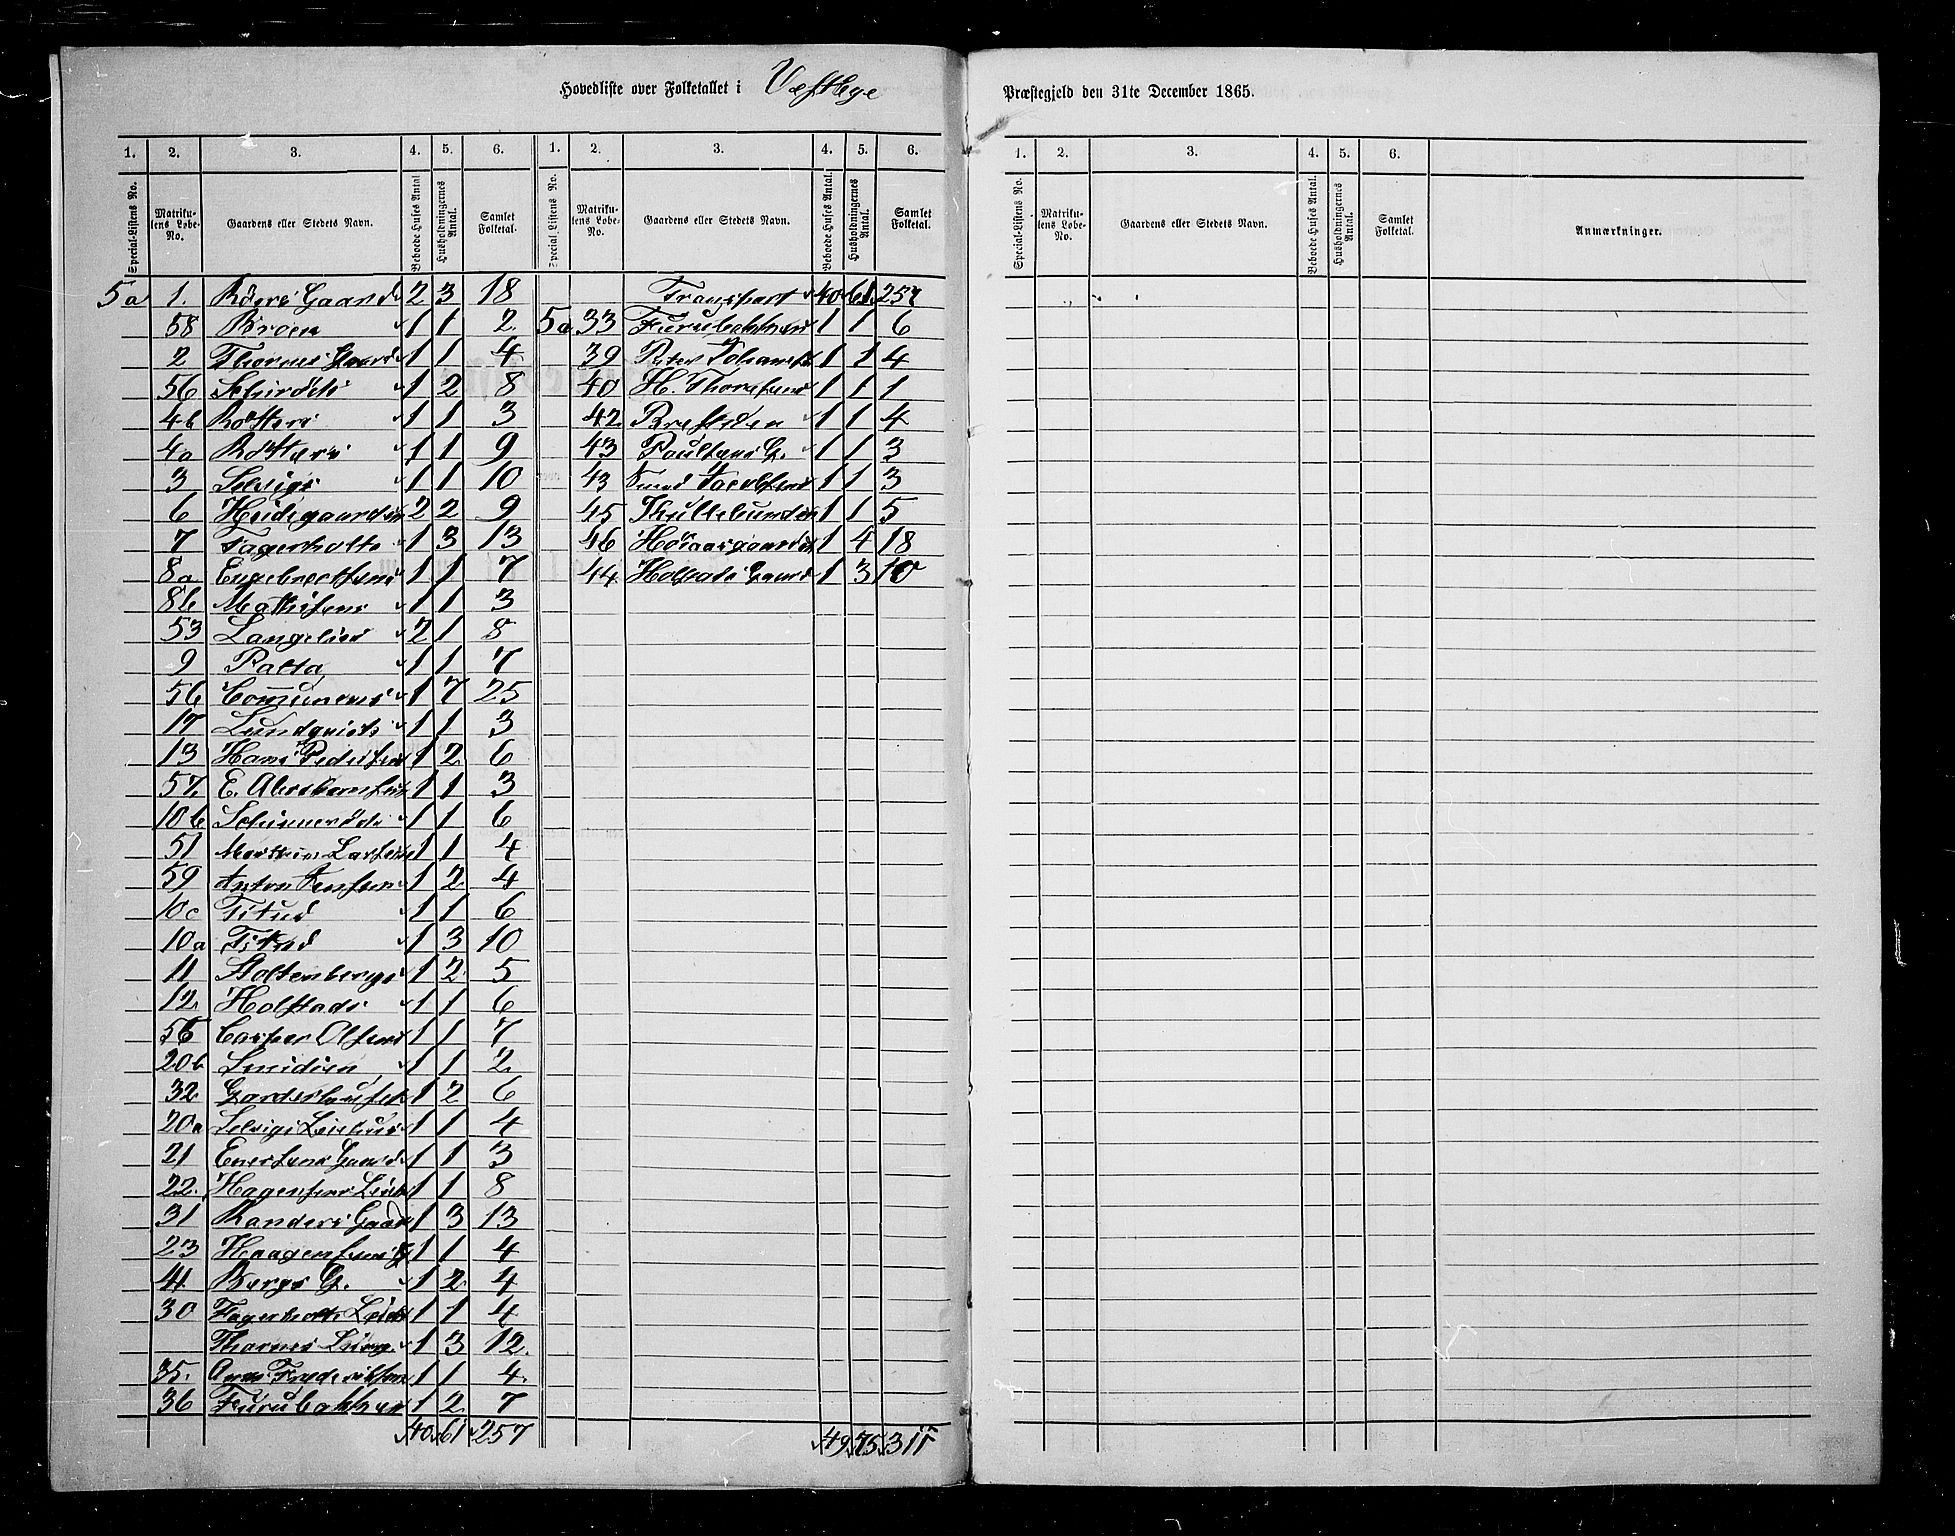 Hovedliste over Folketallet i Vestbye
Præstegjeld den 31te December 1865.
1. 2. 3. 4. 5. 6. 1. 2. 3. 4. 5. 6.
Special-Listens No. Matrikulens Løbe-No. Gaardens eller Stedets Navn. Beboede Huses Antal Husholdningernes Antal. Samlet Folketal. Special Listens No. Matrikulens Løbe-No. Gaardens eller Stedets Navn. Beboede Huses Antal. Husholdningernes Antal. Samlet Folketal.
5a 1. Röers Gaard 2 3 18
58 Broen 1 1 2
2 Thornes Gaard 1 1 4
56 1 2 8
4b Rötters 1 1 3
4a Rötters 1 1 9
3 Solvigs 1 1 10
6 Heidegaarden 2 2 9
7 Fagerholts 1 3 13
8a Engebrectsens 1 1 7
8b Mathisens 1 1 3
53 Langelies 2 1 8
9 Palta 1 1 7
56 Communens 1 7 25
17 Lundqvists 1 1 3
13 Hans Pedersens 1 2 6
57 E. Abrahamsens 1 1 3
10b 1 1 6
51 Larsens 1 1 4
59 Anton Jensens 1 2 4
10c Titud 1 1 6
10a Titud 1 3 10
11 Stoltenbergs 1 2 5
12. Holstads 1 1 6
56 Casper Olsens 1 1 7
20b Smidien 1 1 2
32 1 2 6
20a Solvigs Leiehus 1 1 4
21 Gaard 1 1 3
22. Hagensens 1 1 8
31 Randers Gaard 1 3 13
23 Haagensens G 1 1 4
41 Bergs G. 1 2 4
30 Fagerholts 1 1 4
Thornes 1 3 12.
35. Frederiksen 1 1 4.
36 Furubakken 1 2 7
40 61 257
Transport 40 61 257
5a 33 Furubakken 1 1 6
39 Peter Johansen 1 1 4
40 H. Thoresens 1 1 1
42 1 1 4
43 Paulsens G. 1 1 3
43 Jacobsens 1 1 3
45 Skultelunden 1 1 5
46 1 4 18
44 Holstads Gaard 1 3 10
49 75 311
1. 2. 3. 4. 5. 6.
Special-Listens No. Matrikulens Løbe-No. Gaardens eller Stedets Navn. Beboede Huses Antal. Husholdningernes Antal. Samlet Folketal. Anmærkninger.